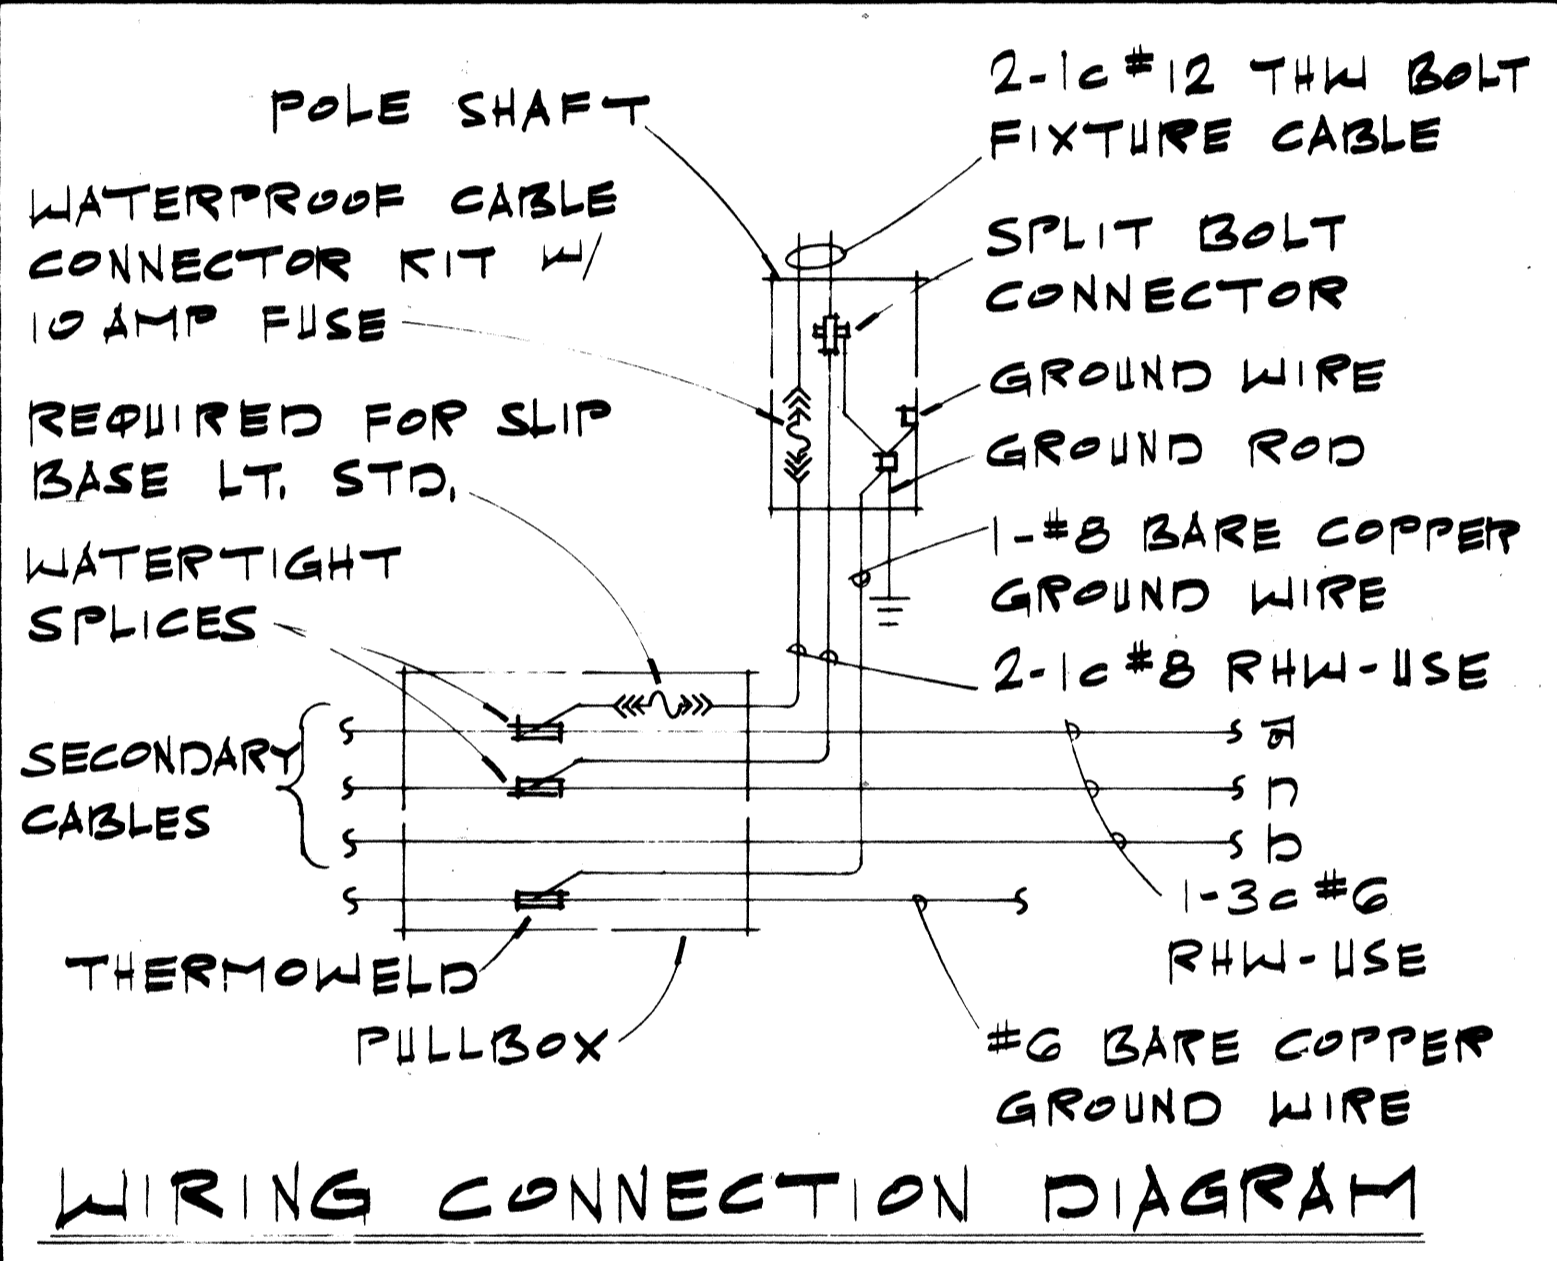 POLE SHAFT
WATERPROOF CABLE
CONNECTOR KIT W/
10 AMP FUSE
REQUIRED FOR SLIP
BASE LT. STD.
WATERTIGHT
SPLICES
SECONDARY
CABLES
THERMOWELD
PULLBOX
2-1c #12 THW BOLT
FIXTURE CABLE
SPLIT BOLT
CONNECTOR
GROUND WIRE
GROUND ROD
1-#8 BARE COPPER
GROUND WIRE
2-1c #8 RHW-USE
a
n
b
1-3c #6
RHW-USE
#6 BARE COPPER
GROUND WIRE
WIRING CONNECTION DIAGRAM